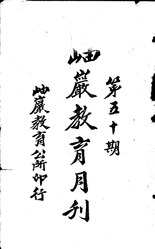 第五十期
岫巖教育月刊
岫巖教育公所印行